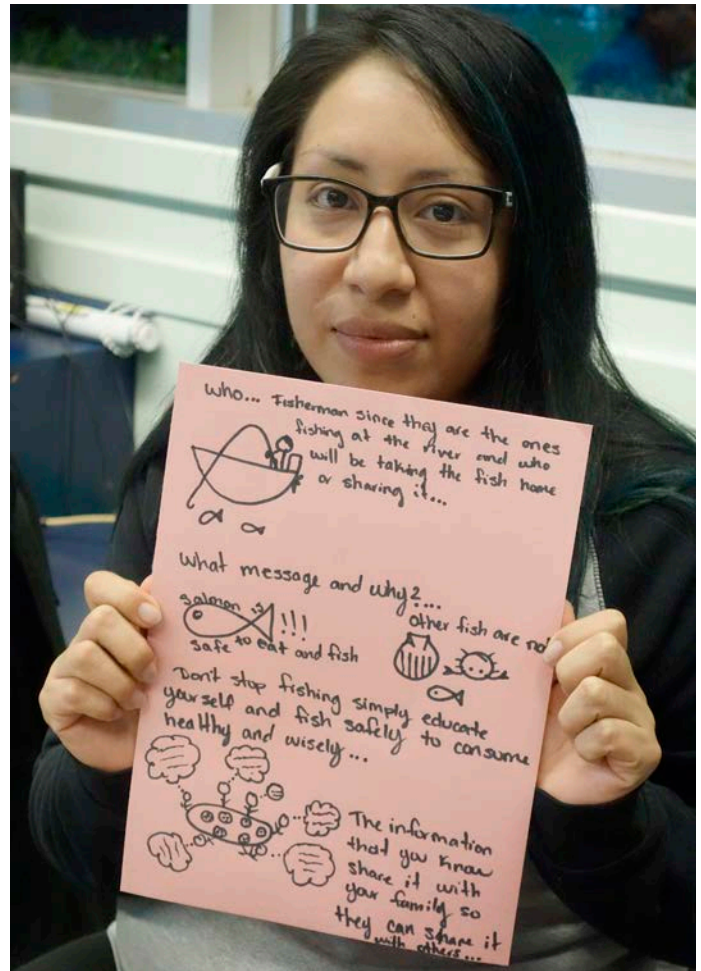 Who... Fisherman since they are the ones
fishing at the river and who
will be taking the fish home
or sharing it...
What message and why?...
salmon is
!!!
safe to eat and fish
other fish are not
Don't stop fishing simply educate
yourself and fish safely to consume
healthy and wisely...
The information
that you know
share it with
your family so
they can share it
with others...